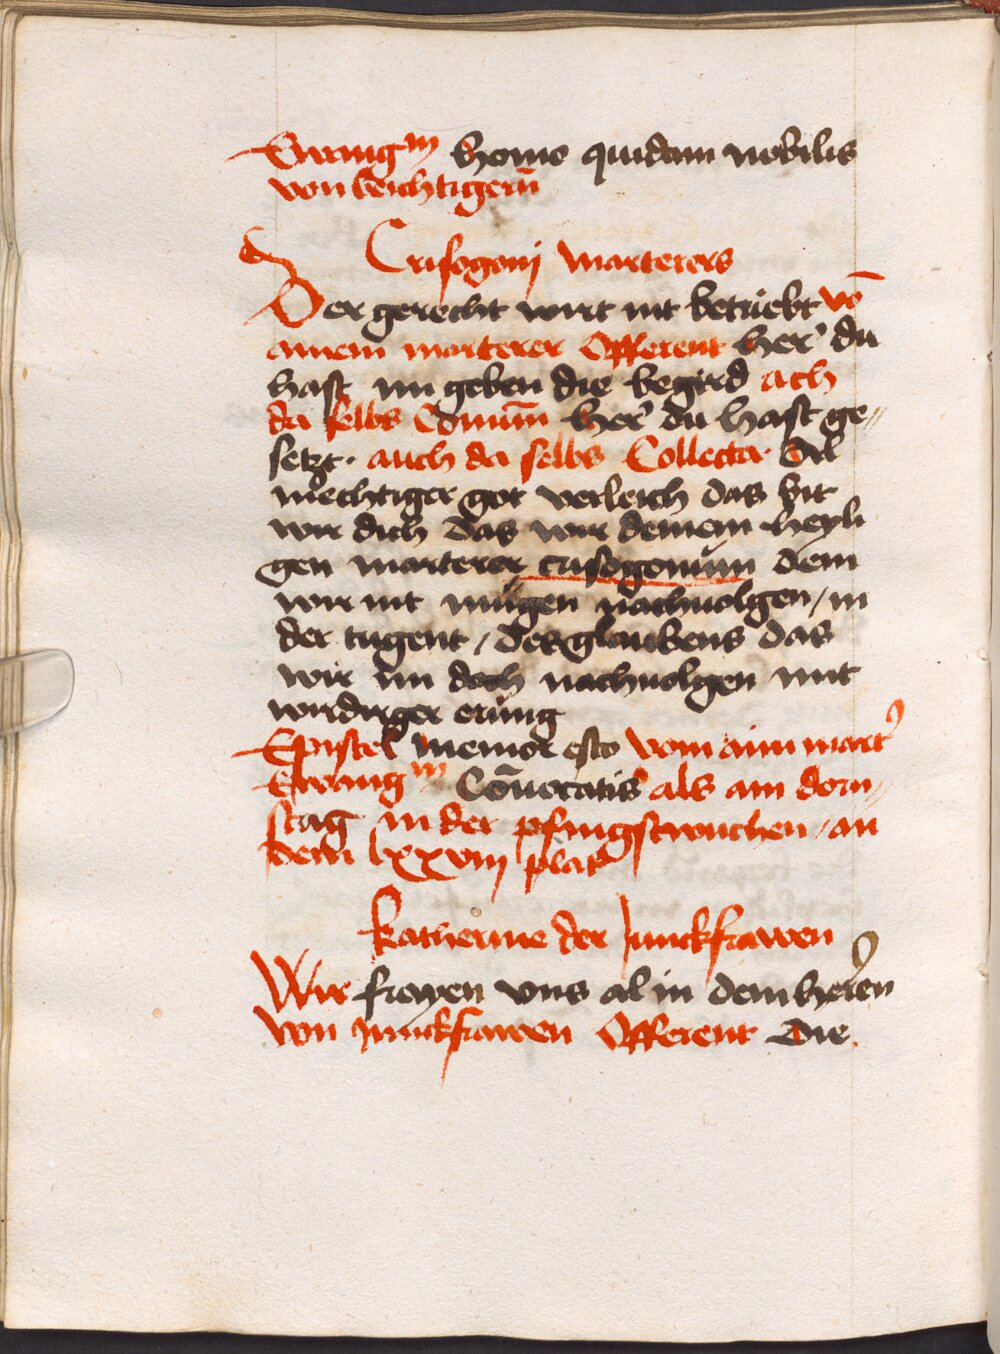 Ewangm homo quidam nobilis
von beichtigern̄
Crisogonj marterers
Der gerecht wirt nit betrüebt vō
ainem marterer Offerent her du
hast im geben die begird ach
da selbs Comūm her du hast ge„
setzt. auch da selbs Collecta. Al
mechtiger got verleich das bit
wir dich das wir deinem heyli
gen marterer crisogonum dem
wir nit mügen nachuolgen / in
der tugent / des glaubens das
wir im doch nachuolgen mit
wirdiger erüng
Epistel memor esto vom ainn mart
Ewangm Cōuocatis als am dorn„
stag in der pfingstwuchen / an
dem lxxviij plat
Katherine der Junckfrawen
Wir frayen vns al in dem heren
von Junckfrawen Offerent Die